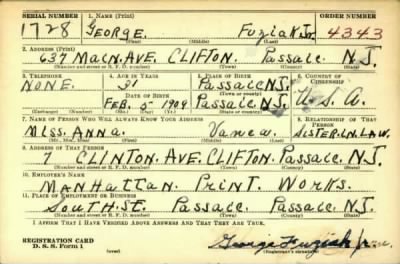 SERIAL NUMBER 1. NAME (Print) ORDER NUMBER
1728 GEORGE. Fuziak Jr. 4343
(First) (Middle) (Last)
2. ADDRESS (Print)
637 Main. AVE. CLIFTON. Passaic N.J.
(Number and street or R. F. D. number) (Town) (County) (State)
3. TELEPHONE 4. AGE IN YEARS 5. PLACE OF BIRTH 6. COUNTRY OF CITIZENSHIP
NONE. 31 Passaic N.J.
DATE OF BIRTH
FEB. 5- 1909 Passaic. N.J. U.S.A.
(Exchange) (Number) (Mo.) (Day) (Yr.) (State or country)
7. NAME OF PERSON WHO WILL ALWAYS KNOW YOUR ADDRESS 8. RELATIONSHIP OF THAT PERSON
Miss. Anna. Vanca. SISTER.IN.LAW.
(Mr., Mrs., Miss) (First) (Middle) (Last)
9. ADDRESS OF THAT PERSON
7 CLINTON. AVE. CLIFTON. Passaic N.J.
(Number and street or R. F. D. number) (Town) (County) (State)
10. EMPLOYER'S NAME
Manhattan Print. Works.
11. PLACE OF EMPLOYMENT OR BUSINESS
South.St. Passaic Passaic N.J.
(Number and street or R. F. D. number) (Town) (County) (State)
I AFFIRM THAT I HAVE VERIFIED ABOVE ANSWERS AND THAT THEY ARE TRUE.
REGISTRATION CARD
D. S. S. Form 1 (over) George Fuziak Jr.
(Registrant's signature)